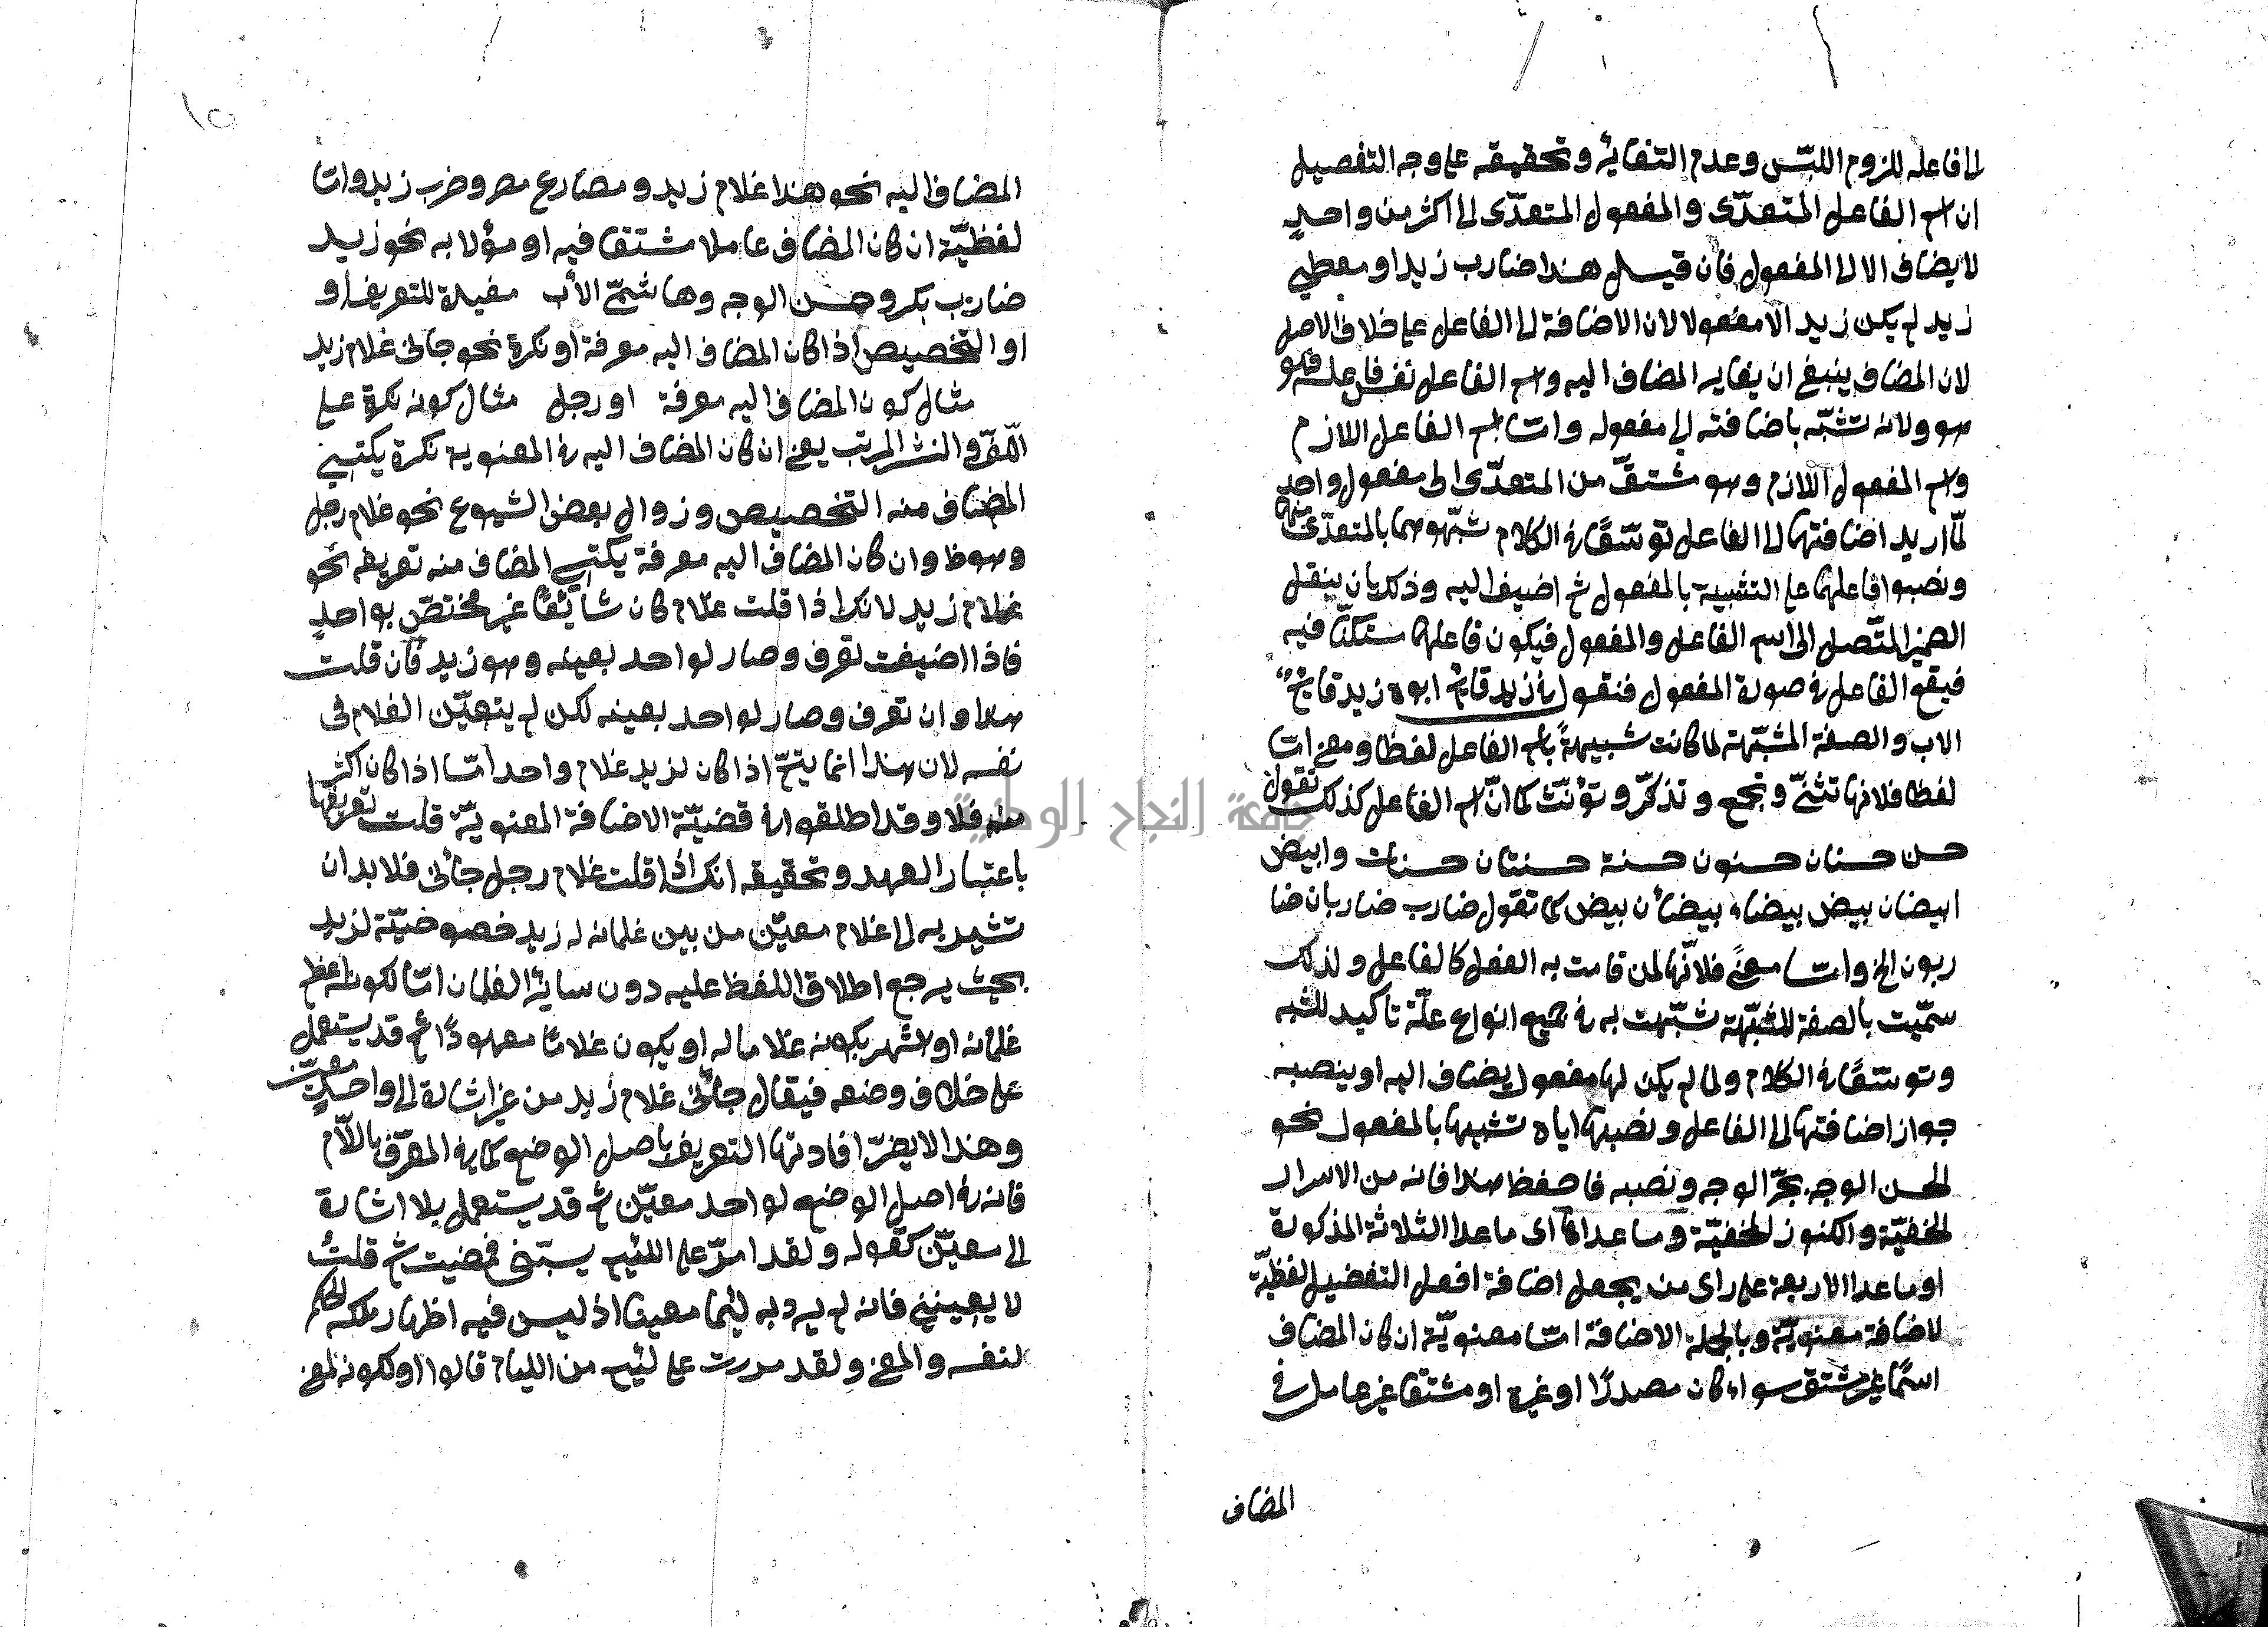 الى فاعله للزوم اللبس وعدم التغاير وتحقيقه على وجه التفصيل
ان اسم الفاعل المتعدّى والمفعول المتعدّى الى اكثر من واحدٍ
لا يضاف الا الى المفعول فان قيل هذا ضارب زيد او معطى
زيد لم يكن زيد الا مفعولا لان الاضافة الى الفاعل على خلاف الاصل
لان المضاف ينبغى ان يغاير المضاف اليه واسم الفاعل نفس فاعله فهو
هو ولانه تشبّه باضافته الى مفعوله واما اسم الفاعل اللازم
واسم المفعول اللازم وهو مشتقّ من المتعدّى الى مفعول واحدٍ
لمّا اريد اضافتها الى الفاعل توسّعًا فى الكلام شبّهوهما بالمتعدّى منهما
ونصبوا فاعلهما على التشبيه بالمفعول ثم اضيف اليه وذلك بان ينقل
الضمير المتّصل الى اسم الفاعل والمفعول فيكون فاعلها مستكنّا فيه
فيقع الفاعل فى صورة المفعول فنقول فى زيد قايم ابوه زيد قايم
الاب والصفة المشبّهة لما كانت شبيهةً باسم الفاعل لفظا ومعنى اما
لفظا فلانها تثنّى وتجمع وتذكّر وتؤنّث كما انّ اسم الفاعل كذلك تقول
حسن حسنان حسنون حسنة حسنتان حسنات وابيض
ابيضان بيض بيضاء بيضأن بيض كما تقول ضارب ضاربان ضا
ربون الخ واما معنىً فلانّها لمن قامت به الفعل كالفاعل ولذلك
سمّيت بالصفة المشبّهة شبّهت به فى جميع انواع علّة تاكيد للشبه
وتوسّعًا فى الكلام ولما لم يكن لها مفعول يضاف اليه او ينصبه
جواز اضافتها الى الفاعل ونصبها اياه تشبيها بالمفعول نحو
الحسن الوجه بجرّ الوجه ونصبه فاحفظ هذا فانه من الاسرار
الخفيّة والكنوز المخفيّة وما عداها اى ما عدا الثلاثة المذكورة
او ما عدا الاربعة على راى من يجعل اضافة افعل التفضيل لفظيّة
لاضافة معنويّة وبالجملة الاضافة امّا معنويّة ان كان المضاف
اسمًا غير مشتق سواء كان مصدرًا او غيره او مشتقا غير عامل فى
المضاف
المضاف اليه نحو هذا غلام زيد ومصارع مصر وضرب زيد واما
لفظيّة ان كان المضاف عاملا مشتقا فيه او مؤلا به نحو زيد
ضارب بكر وحسن الوجه وهاشمىّ الأب مفيدة للتعريف او
او التخصيص اذا كان المضاف اليه معرفة او نكرة نحو جائى غلام زيد
مثال كون المضاف اليه معرفة او رجل مثال كونه نكرة على
اللّف والنشر المرتب يعنى ان كان المضاف اليه فى المعنوية نكرة يكتسى
المضاف منه التخصيص وزوال بعض الشيوع نحو غلام رجل
وهو ظ وان كان المضاف اليه معرفة يكتسى المضاف منه تعريفه نحو
غلام زيد لانك اذا قلت غلام كان شايعًا غير مختصّ بواحدٍ
فاذا اضيفت تعرف وصار لواحد بعينه وهو زيد فان قلت
هذا وان تعرف وصار لواحد بعينه لكن لم يتعيّن الغلام فى
نفسه لان هذا انما يتمّ اذا كان لزيد غلام واحد امّا اذا كان اكثر
منه فلا وقد اطلقوا فى قضيّة الاضافة المعنويّة قلت تعريفها
باعتبار العهد وتحقيقه انك اذا قلت غلام رجل جائى فلا بد ان
تشير به الى غلام معيّن من بين غلمانه له زيد خصوصيّة لزيد
بحيث يرجع اطلاق اللفظ عليه دون سائر الغلمان امّا لكونه اعظم
غلمانه او اشهر بكونه غلاما له او يكون غلامًا معهودًا ثم قد يستعمل
على خلاف وضعه فيقال جائى غلام زيد من غير اشارة الى واحدٍ معيّن
وهذا لا يضرّ افادتها التعريف باصل الوضع كما فى المعرّف باللاّم
فانه فى اصل الوضع لواحد معيّن ثم قد يستعمل بلا اشارة
الى معيّن كقوله ولقد امرّ على اللئيم يسبّنى فمضيت ثم قلتُ
لا يعنينى فانه لم يرد به لئيما معينا اذ ليس فيه اظهار ملكه الحلم
لنفسه والمعنى ولقد مررت على لئيم من الليام قالوا او لكونه لمعنى
جامعة النجاح الوطنية